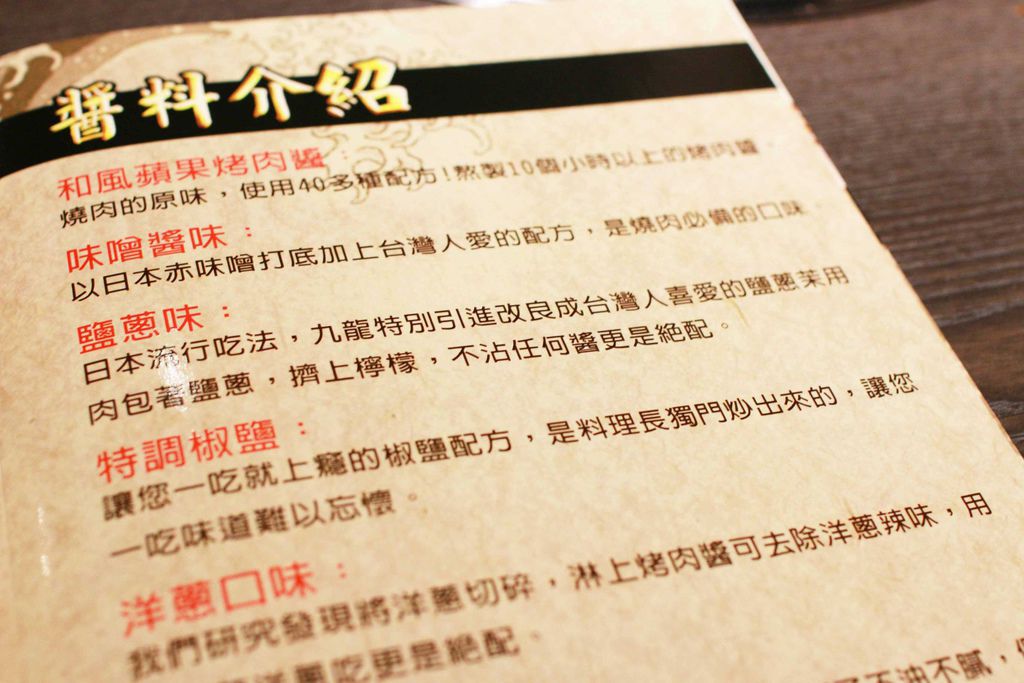 醬料介紹
和風蘋果烤肉醬：
燒肉的原味，使用40多種配方！熬製10個小時以上的烤肉醬
味噌醬味：
以日本赤味噌打底加上台灣人愛的配方，是燒肉必備的口味
鹽蔥味：
日本流行吃法，九龍特別引進改良成台灣人喜愛的鹽蔥苿用
肉包著鹽蔥，擠上檸檬，不沾任何醬更是絕配。
特調椒鹽：
讓您一吃就上癮的椒鹽配方，是料理長獨門炒出來的，讓您
一吃味道難以忘懷。
洋蔥口味：
我們研究發現將洋蔥切碎，淋上烤肉醬可去除洋蔥辣味，用
洋蔥吃更是絕配。
不油不膩，